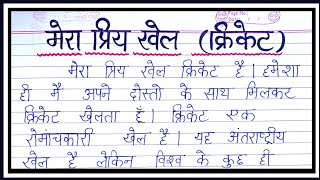 मेरा प्रिय खेल (क्रिकेट)
मेरा प्रिय खेल क्रिकेट है। हमेशा
ही मै अपने दोस्तो के साथ मिलकर
क्रिकेट खेलता हूँ। क्रिकेट एक
रोमांचकारी खेल है। यह अंतराष्ट्रीय
खेल है लेकिन विश्व के कुछ ही